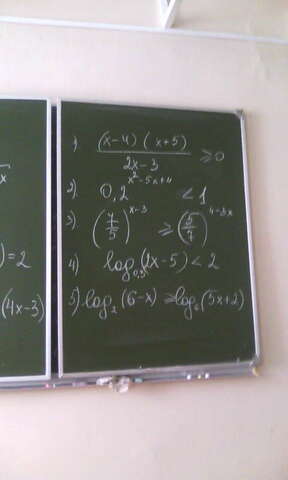 x
) = 2
(4x-3)
1) (x-4)(x+5)
2x-3 ≥ 0
2). 0,2^(x²-5x+4) < 1
3) (7/5)^(x-3) ≥ (5/7)^(4-3x)
4) log (2x-5) < 2
5) log₂ (6-x) ≥ log (5x+2)